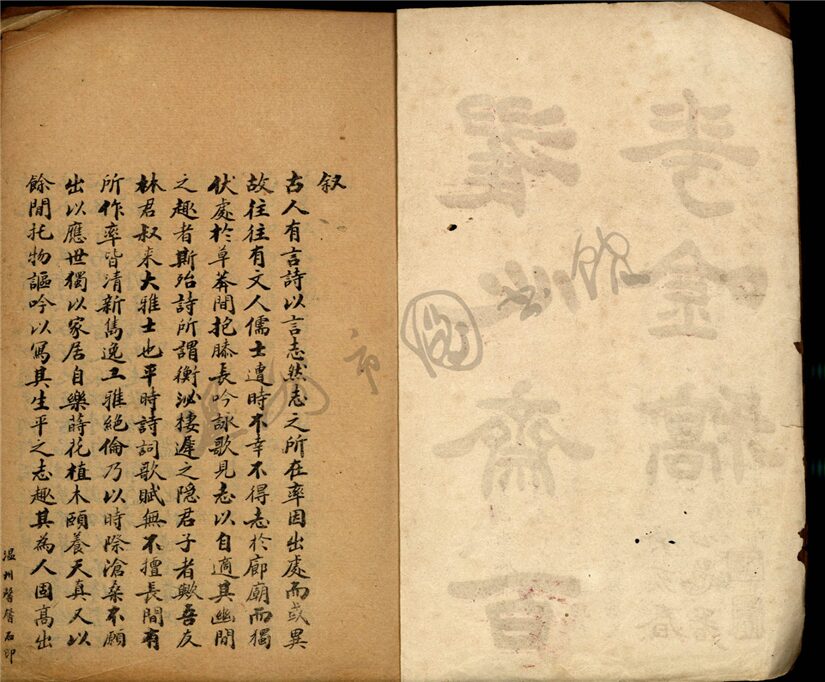 温州市圖书馆
叙
古人有言詩以言志然志之所在率因出處而或異
故往往有文人儒士遭時不幸不得志於廊廟而獨
伏處於草莽間抱膝長吟詠歌見志以自適其幽閒
之趣者斯殆詩所謂衡泌棲遲之隐君子者歟吾友
林君叔来大雅士也平時詩詞歌賦無不擅長間有
所作率皆清新雋逸工雅絕倫乃以時際滄桑不願
出以應世獨以家居自樂蒔花植木頤養天真又以
餘閒托物謳吟以寫其生平之志趣其為人固髙出
温州石印